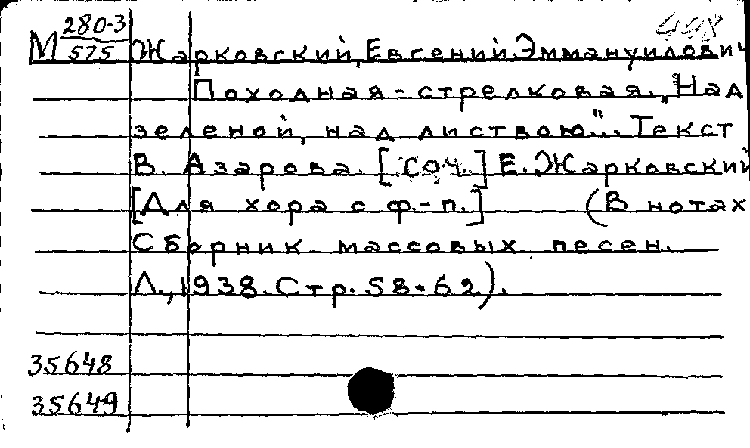 448
М 280-3/575 Жарковский, Евгений Эммануилович
Походная-стрелковая. „Над
зеленой, над листвою"... Текст
В. Азарова. [Соч.] Е. Жарковский
[Для хора с ф.-п.] (В нотах
Сборник массовых песен.
Л., 1938. Стр. 58-62).
35648
35649